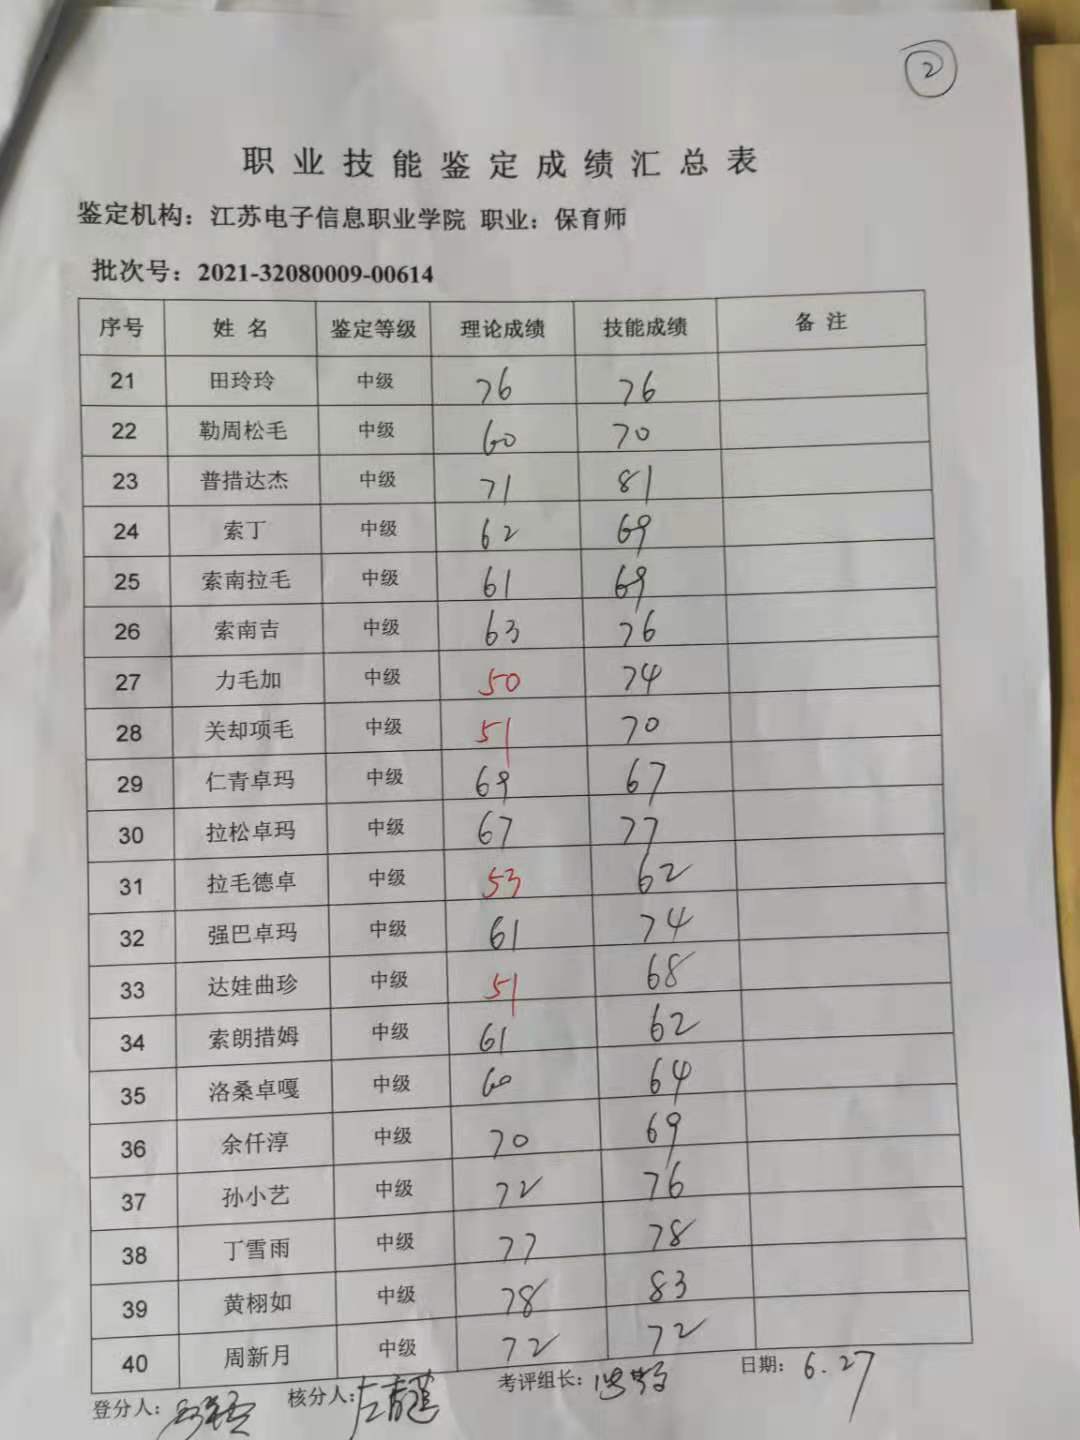 2
职业技能鉴定成绩汇总表
鉴定机构：江苏电子信息职业学院 职业：保育师
批次号：2021-32080009-00614
序号 姓名 鉴定等级 理论成绩 技能成绩 备注
21 田玲玲 中级 76 76
22 勒周松毛 中级 60 70
23 普措达杰 中级 71 81
24 索丁 中级 62 69
25 索南拉毛 中级 61 69
26 索南吉 中级 63 76
27 力毛加 中级 50 74
28 关却项毛 中级 51 70
29 仁青卓玛 中级 69 67
30 拉松卓玛 中级 67 77
31 拉毛德卓 中级 53 62
32 强巴卓玛 中级 61 74
33 达娃曲珍 中级 51 68
34 索朗措姆 中级 61 62
35 洛桑卓嘎 中级 60 64
36 余仟淳 中级 70 69
37 孙小艺 中级 72 76
38 丁雪雨 中级 77 78
39 黄栩如 中级 78 83
40 周新月 中级 72 72
登分人： 核分人： 考评组长： 日期：6.27